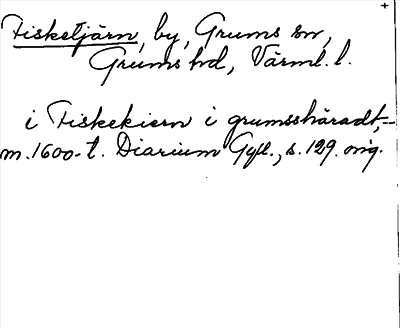 Fisketjärn, by, Grums sn,
Grums hd, Värml. l.
i Fiskekiern i grumsshäradt,--
m.1600-t. Diarium Gyll., s. 129. orig.